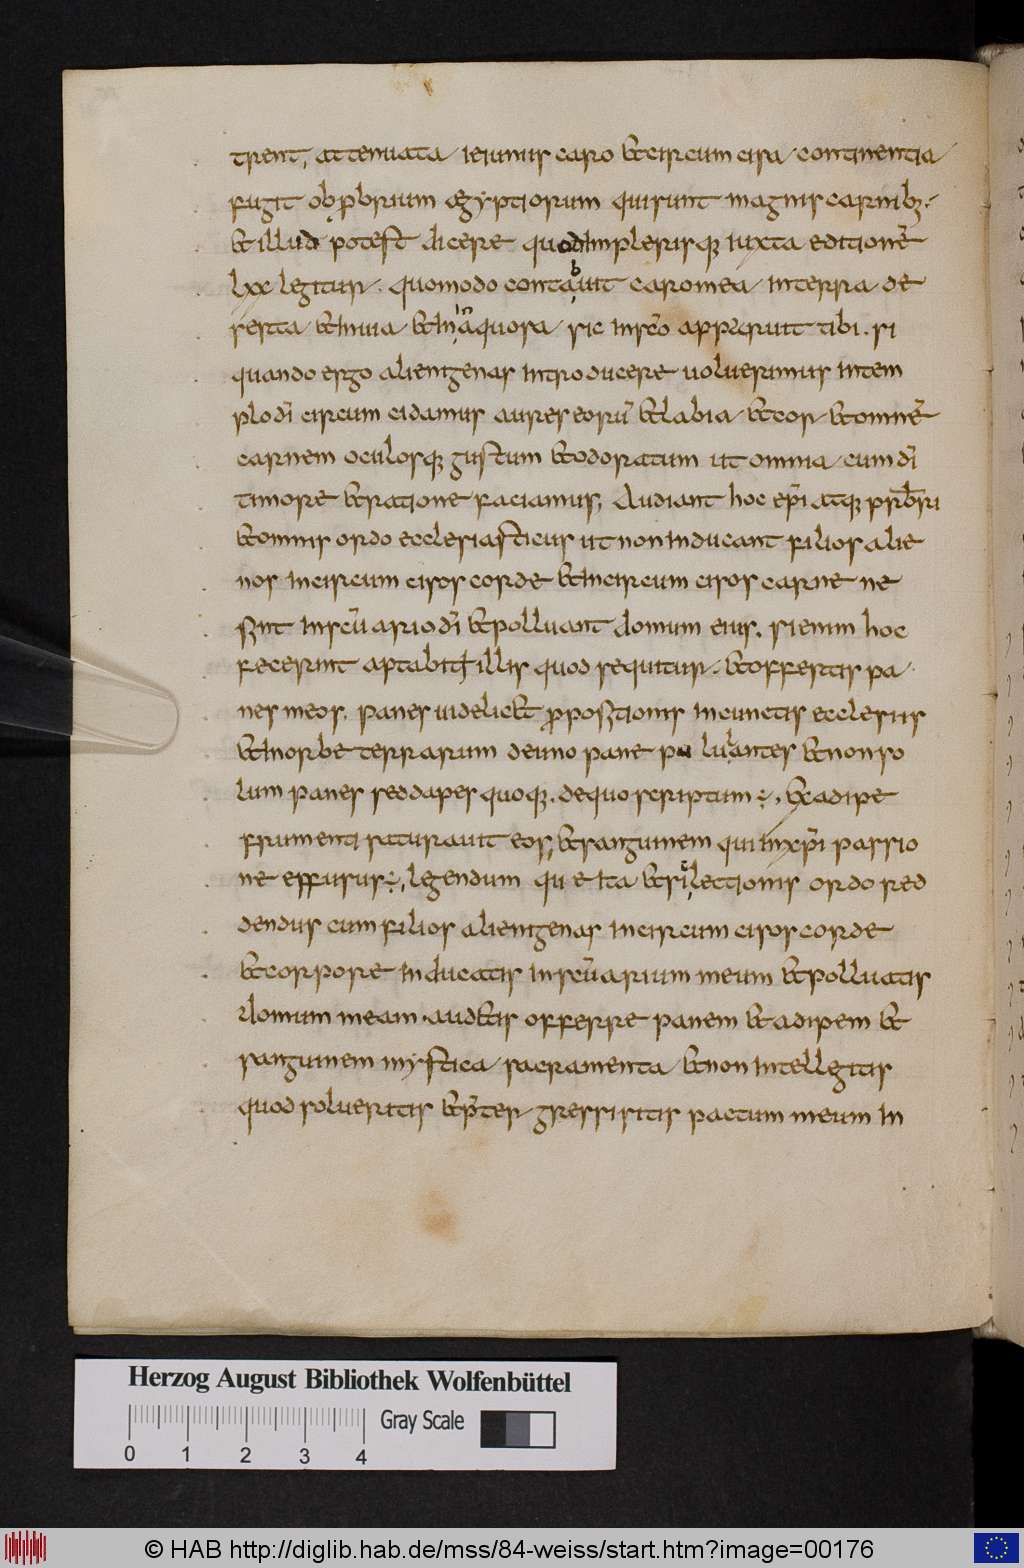 trent, attenuata ieiuniis caro & circumcisa continentia
fugit obp̱brium ægyptiorum qui sunt magnis carnib;.
& illud potest dicere quod inplerisq; iuxta editionē
lxx legitur. quomodo contabuit caro mea in terra de
serta & inuia & in inaquosa sic in sc̄o apparuit tibi. si
quando ergo alienigenas introducere uoluerimus in tem
plo dī circumcidamus aures eorū & labia & cor & omnē
carnem oculosq; gustum & odoratum ut omnia cum dī
timore & ratione faciamus, Audiant hoc ep̄i atq; prb̄ri
& omnis ordo ecclesiasticus ut non inducant filios alie
nos incircumcisos corde & incircumcisos carne ne
sint in sc̄uario dī & polluant domum eius. si enim hoc
fecerint aptabitur illis quod sequitur. & offertis pa
nes meos. panes uidelic& propositionis in cunctis ecclesiis
& in orbe terrarum de uno pane pullulantes & non so
lum panes sed dapes quoq;. de quo scriptum ÷, & adipe
frumenti saturauit eos, & sanguinem qui in xp̄i passio
ne effusus ÷, legendum quæ ita & si lectionis ordo red
dendus cum filios alienigenas incircumcisos corde
& corpore inducatis in sc̄uarium meum & polluatis
domum meam. aud&is offerre panem & adipem &
sanguinem mystica sacramenta & non intellegitis
quod solueritis & p̄tergressi sitis pactum meum in
Herzog August Bibliothek Wolfenbüttel
Gray Scale
0 1 2 3 4
© HAB http://diglib.hab.de/mss/84-weiss/start.htm?image=00176